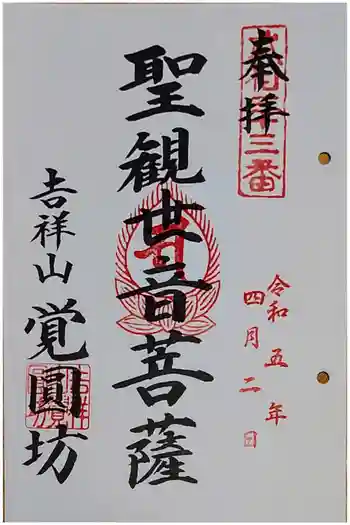 奉拝
三番
令和五年
四月二日
聖観世音菩薩
吉祥山
覚圓坊